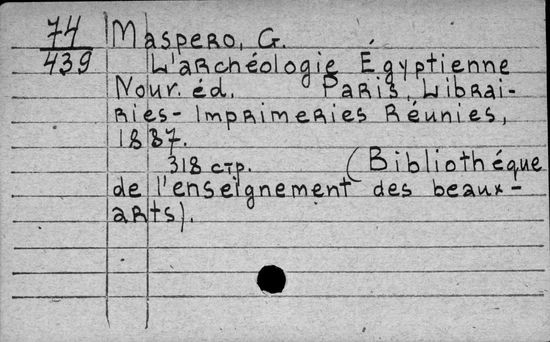 74 Maspero, G.
439 L'archéologie Égyptienne
Nouv. éd. Paris, Librai-
ries-Imprimeries Réunies,
1887.
318 стр. (Bibliothéque
de l'enseignement des beaux-
arts).